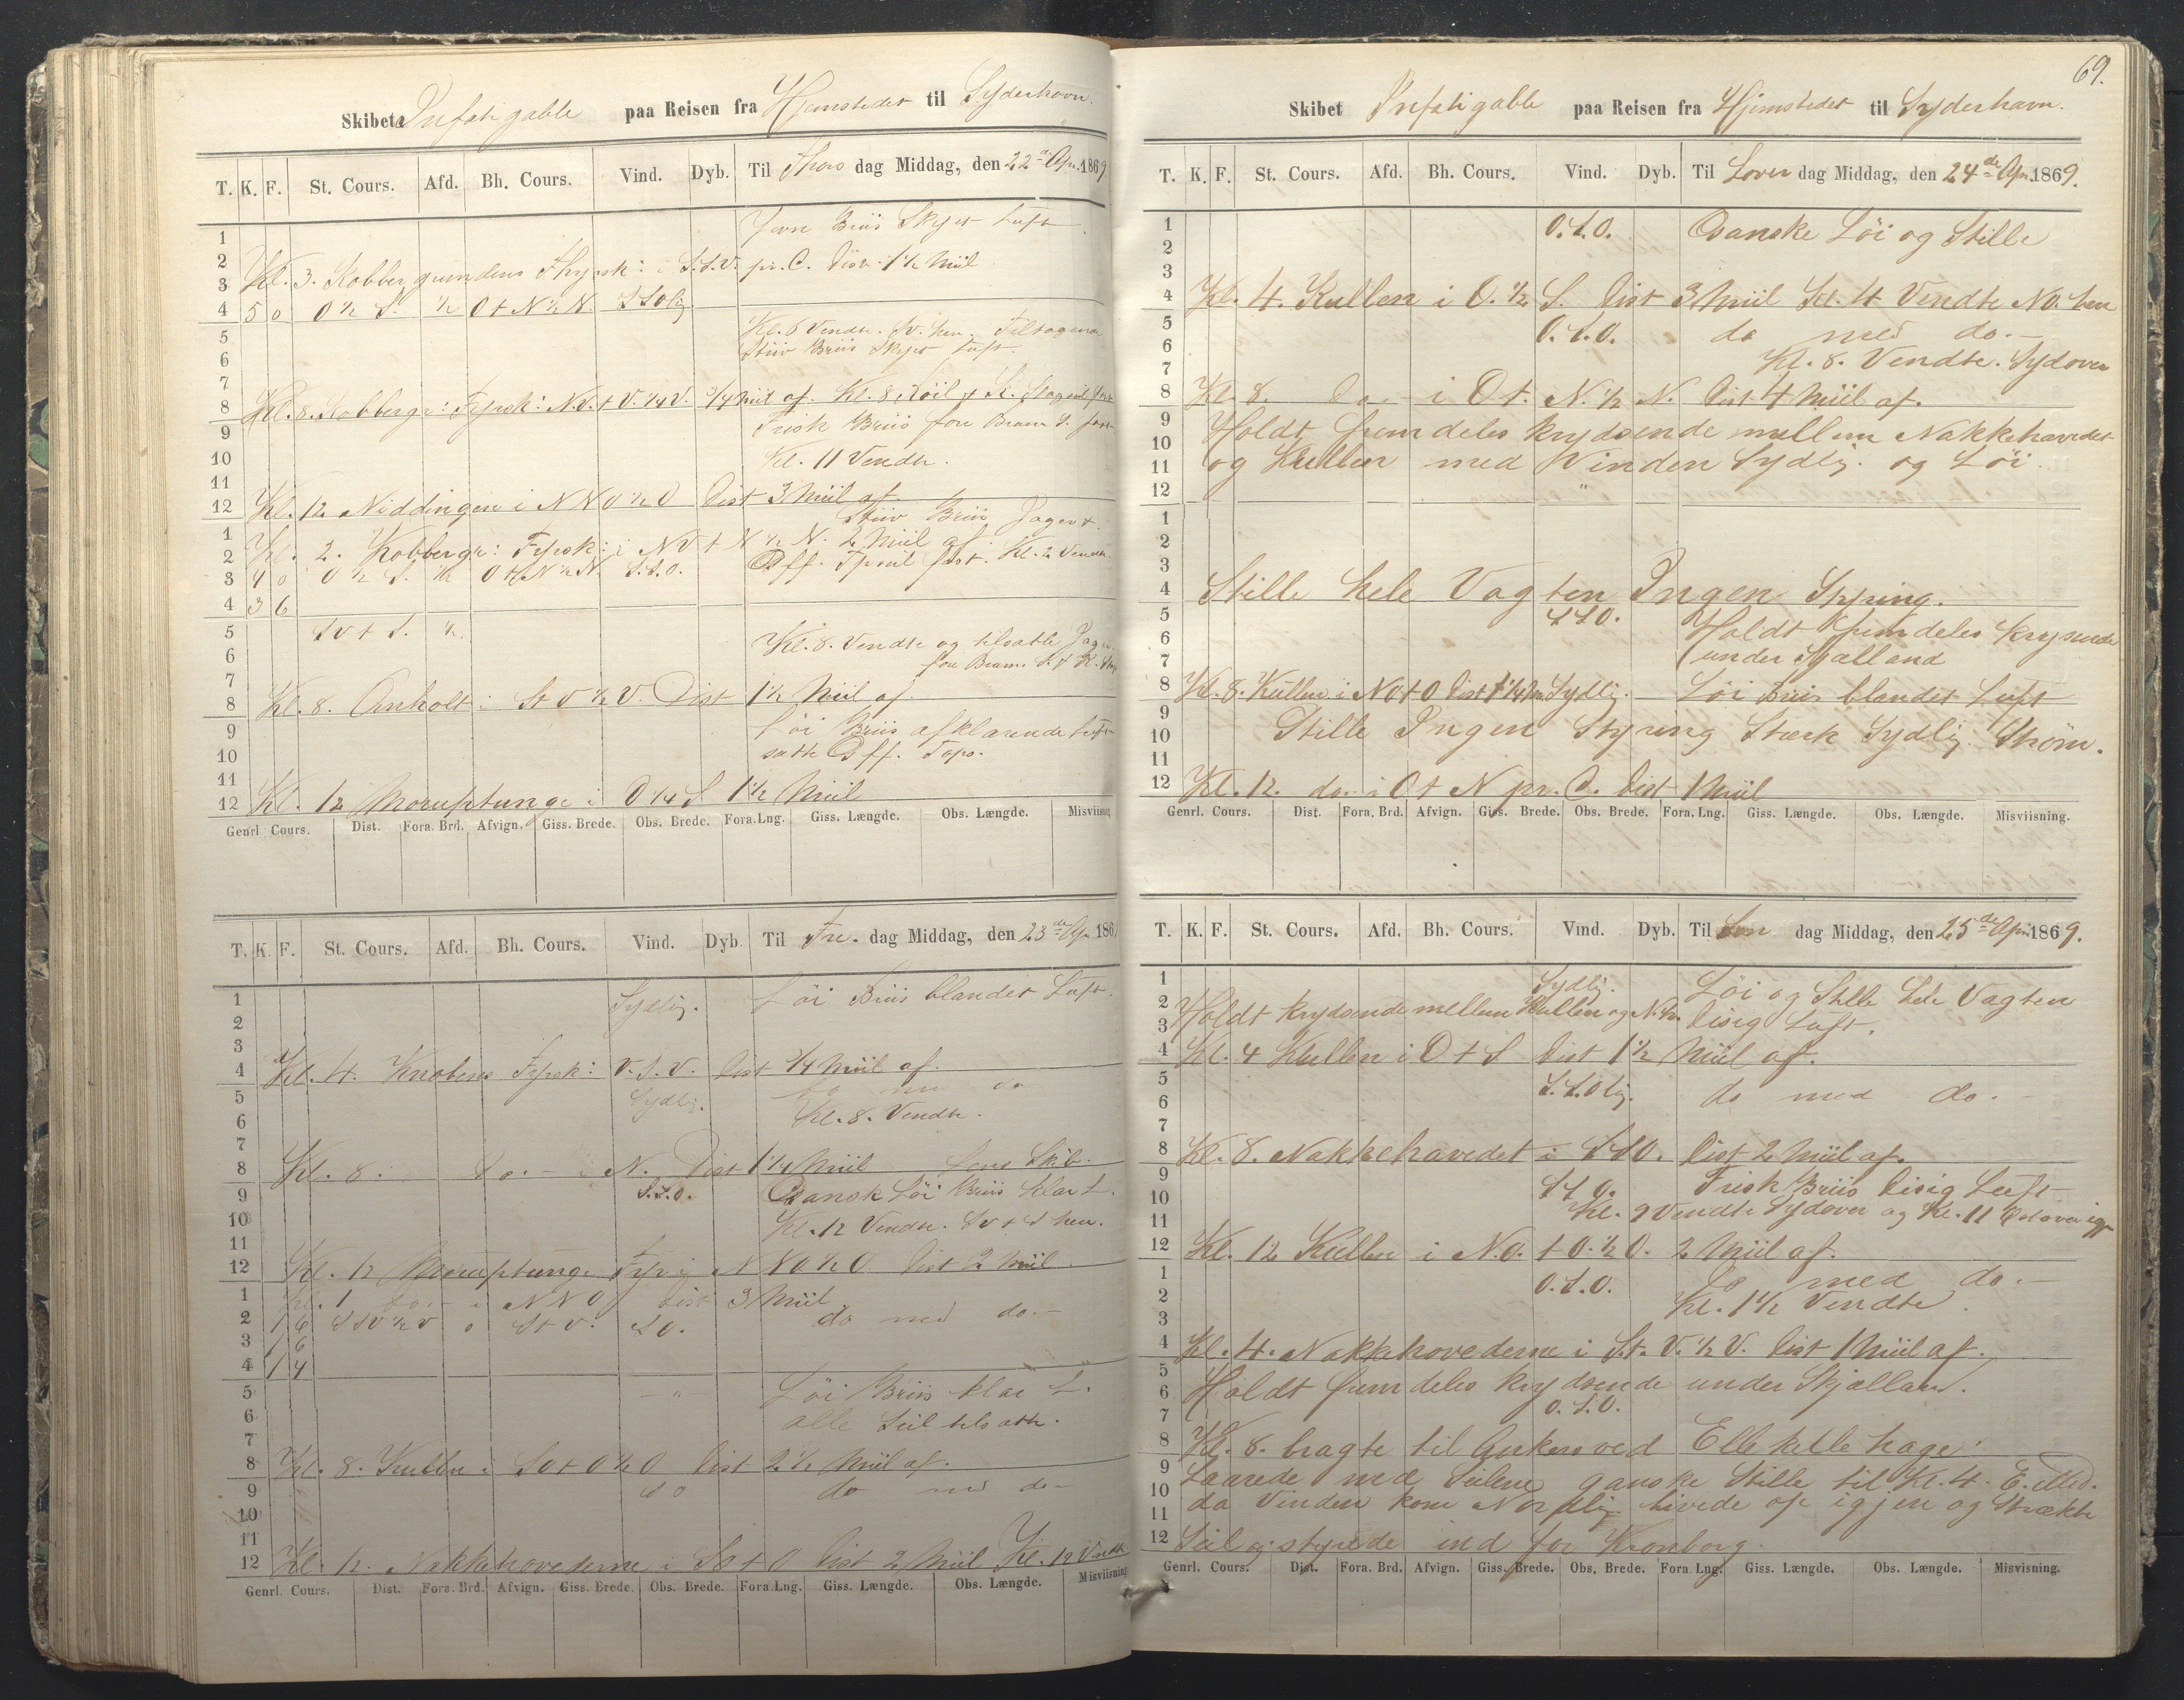 Skibet Infatigable paa Reisen fra Hjemstedet til Syderhavn.
T. K. F. St. Cours. Afd. Bh. Cours. Vind. Dyb. Til Thors dag Middag, den 22de Apr. 1869
1 Jevn Briis Skyet Luft
2
3 Kl. 3. Kobbergrundens Fyrsk: i S.S.V. pr. C. Dist. 1 1/2 Miil
4 5 0 O 1/2 S. 1/2 O t N 1/2 N. SSOlig
5 Kl. 6 Vendte. hen. Tiltagende
6 Stiv Briis Skyet Luft.
7
8 Kl. 8. Kobbergr: Fyrsk: N.V. t V. 1/4 V. 3/4 Miil af. Kl. 8
9 Frisk Briis
10 Kl. 11 Vendte.
11
12 Kl. 12 Niddingen i NNO 1/2 O Dist 3 Miil af.
1 Stiv Briis Jager
2 Kl. 2. Kobbergr: Fyrsk: i NV t N 1/2 N. 2 Miil af.
3 4 0 O 1/2 S. 1/2 O t N 1/2 N. S.S.O. fast. Kl. 2 Vendte
4 3 6
5 SV t S. 1/2
6 Kl. 8. Vendte og tilsatte Jager
7
8 Kl. 8. Anholt i St V 1/2 V. Dist 1 1/2 Miil af.
9 Löi Briis afklarende Luft
10 satte Tops.
11
12 Kl. 12 Moruptunge i O 1/4 S 1 1/2 Miil
Genrl. Cours. Dist. Fora. Brd. Afvign. Giss. Brede. Obs. Brede. Fora. Lng. Giss. Længde. Obs. Længde. Misviisning
T. K. F. St. Cours. Afd. Bh. Cours. Vind. Dyb. Til Fre. dag Middag, den 23de Apr. 186
1 Sydlig. Löi Briis blandet Luft.
2
3
4 Kl. 4. Knobens Fyrsk: V.S.V. Dist 3/4 Miil af.
5 Sydlig. do med do
6 Kl. 8. Vendte.
7
8 Kl. 8. do. i N. Dist 1 1/4 Miil
9 S.S.O. Gansk Löi Briis klar L.
10 Kl. 12 Vendte. SV t S hen.
11
12 Kl. 12 Moruptunge Fyr i NNO 1/2 O. Dist 2 Miil.
1 Kl. 1 do. i NNO Dist 3 Miil
2 1 6 SSV 1/2 V 0 St V. SO. do med do.
3 1 6
4 1 4
5 - " - Löi Briis klar L.
6 alle Seil tilsatte.
7
8 Kl. 8. Kullen i SO t O 1/2 O Dist 2 1/2 Miil af.
9 SO do med do
10
11
12 Kl. 12. Nakkehovederne i SO t O Dist 2 Miil Kl. 12 Vendte
Genrl. Cours. Dist. Fora. Brd. Afvign. Giss. Brede. Obs. Brede. Fora. Lng. Giss. Længde. Obs. Længde. Misviisning
69.
Skibet Infatigable paa Reisen fra Hjemstedet til Syderhavn.
T. K. F. St. Cours. Afd. Bh. Cours. Vind. Dyb. Til Löver dag Middag, den 24de Apr. 1869.
1 O.S.O. Ganske Löi og Stille
2
3
4 Kl. 4. Kullen i O. 1/2 S. Dist 3 Miil Kl. 4 Vendte NO. hen
5 O.S.O. do med do.
6 Kl. 8. Vendte. Sydover
7
8 Kl. 8. do. i O t. N. 1/2 N. Dist 4 Miil af.
9 Holdt fremdeles krydsende mellem Nakkehovedet
10 og Kullen med Vinden Sydlig. og Löi.
11
12
1
2
3
4 Stille hele Vagten Ingen Styring.
5 SSO. Holdt fremdeles krysende
6 under Sjælland
7
8 Kl. 8. Kullen i NO t O Dist 1 1/4 M. Sydlig. Löi Briis blandet Luft
9 Stille Ingen Styring Stærk Sydlig Ström.
10
11
12 Kl. 12. do. i O t N pr. C. Dist 1 Miil
Genrl. Cours. Dist. Fora. Brd. Afvign. Giss. Brede. Obs. Brede. Fora. Lng. Giss. Længde. Obs. Længde. Misviisning.
T. K. F. St. Cours. Afd. Bh. Cours. Vind. Dyb. Til Søn dag Middag, den 25de Apr. 1869.
1 Sydlig. Löi og Stille hele Vagten
2 Holdt krydsende mellem Kullen og N.h. Disig Luft.
3
4 Kl. 4 Kullen i O t S Dist 1 1/2 Miil af.
5 S.S.Olig. do med do.
6
7
8 Kl. 8. Nakkehovedet i SSO. Dist 2 Miil af.
9 SSO. Frisk Briis Disig Luft
10 Kl. 9 Vendte Sydover og Kl. 11 Ostover igjen
11
12 Kl. 12 Kullen i N.O. t O. 1/2 O. 2 Miil af.
1 O.S.O. do med do.
2 Kl. 1 1/2 Vendte.
3
4 Kl. 4. Nakkehovederne i S.t. V. 1/2 V. Dist 1 Miil af.
5 Holdt fremdeles krydsende under Skjælland.
6 O.S.O.
7
8 Kl. 8. bragte til Ankers ved Ellekilde hage
9 Laarede med Seilene ganske Stille til Kl. 4. E. Md.
10 da Vinden kom Nordlig hivede op igjen og Strækte
11
12 Seil og styrede ind for Kronborg.
Genrl. Cours. Dist. Fora. Brd. Afvign. Giss. Brede. Obs. Brede. Fora. Lng. Giss. Længde. Obs. Længde. Misvisning.